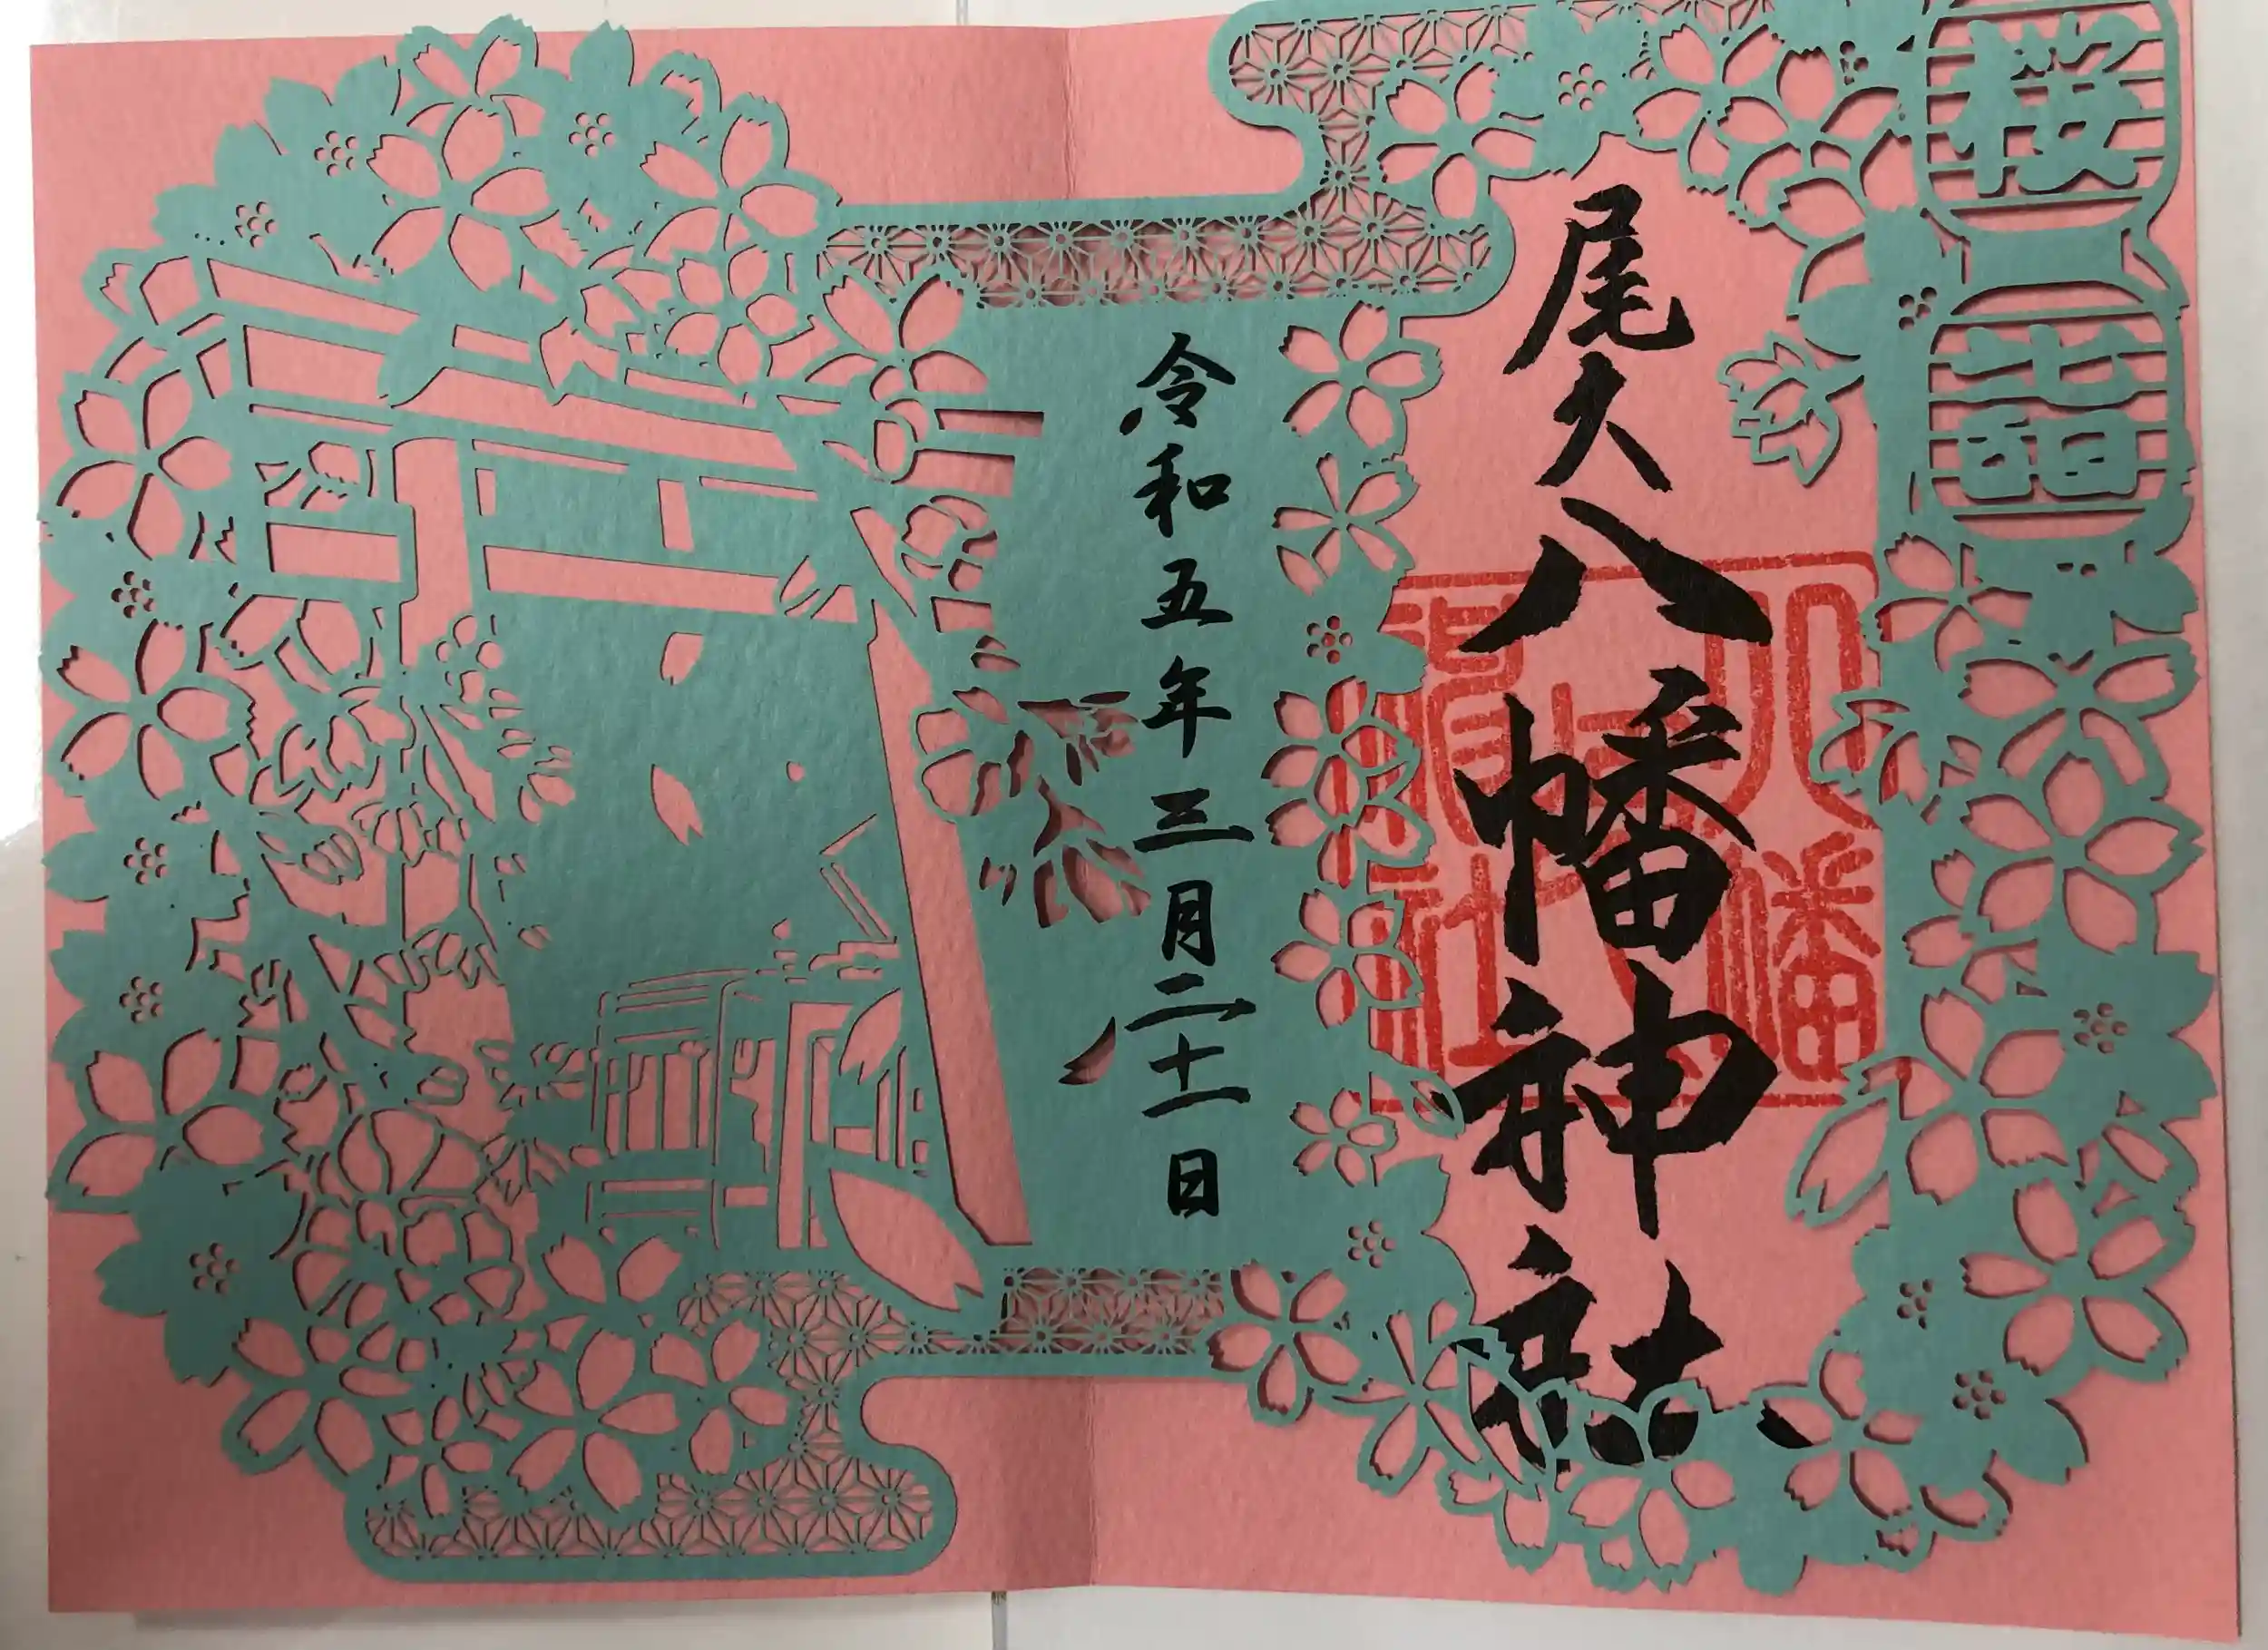 桜詣
尾久八幡神社
令和五年三月二十一日